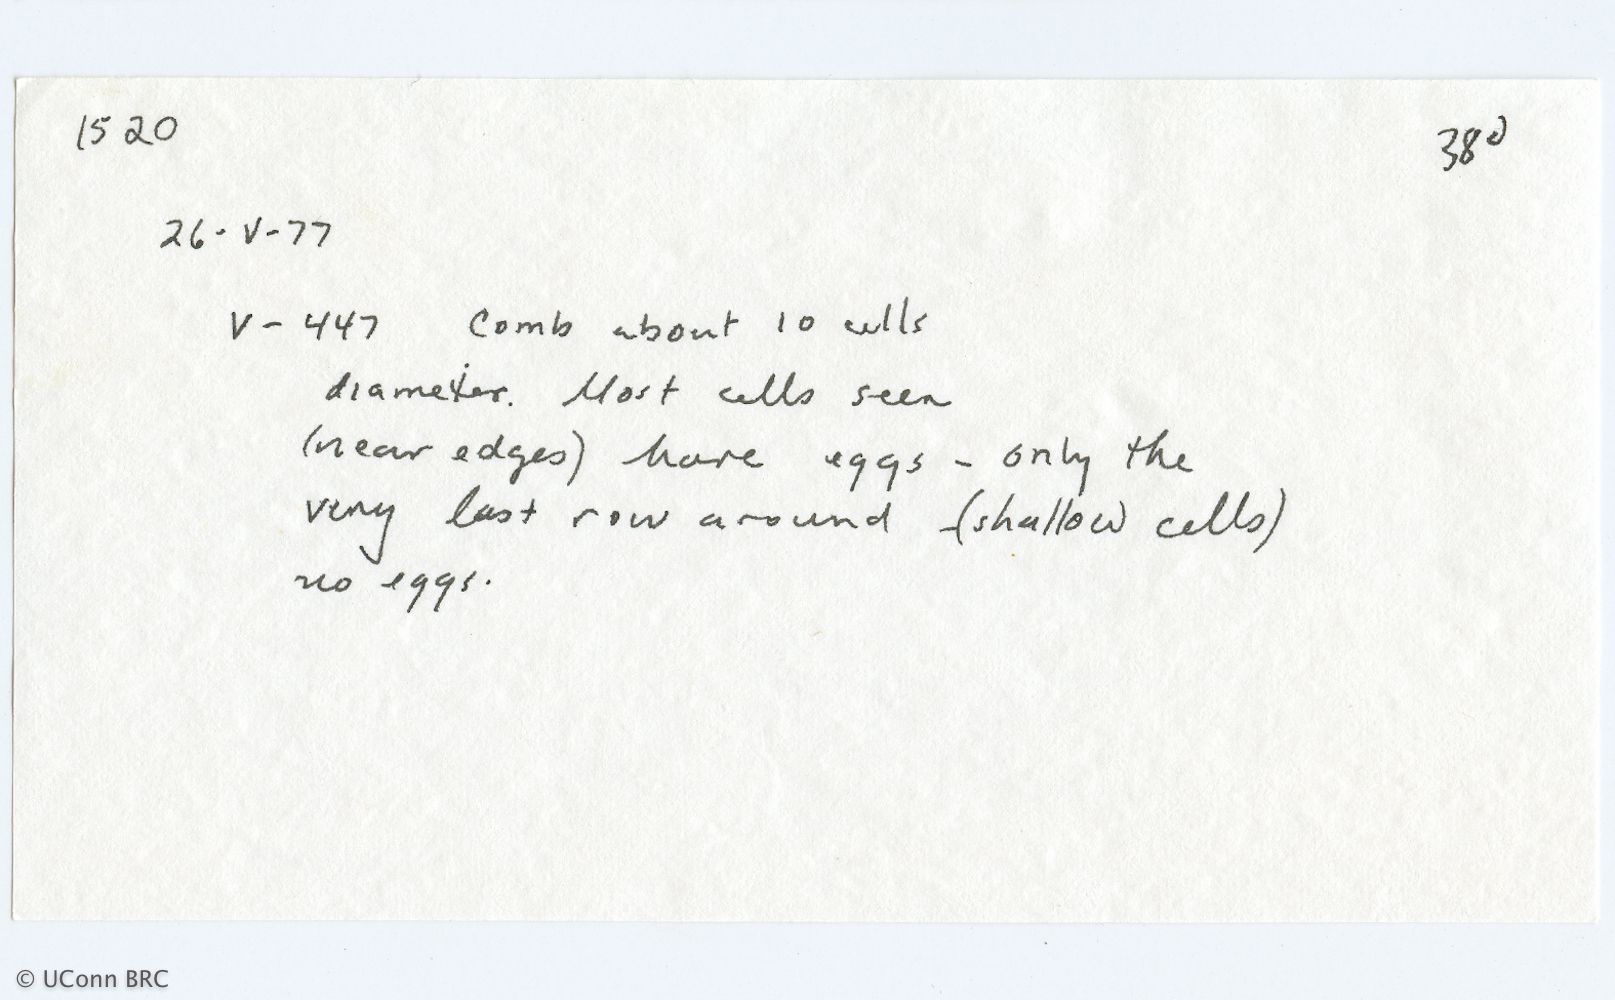 1520
380
26-V-77
V-447 Comb about 10 cells
diameter. Most cells seen
(near edges) have eggs - only the
very last row around - (shallow cells)
no eggs.
© UConn BRC